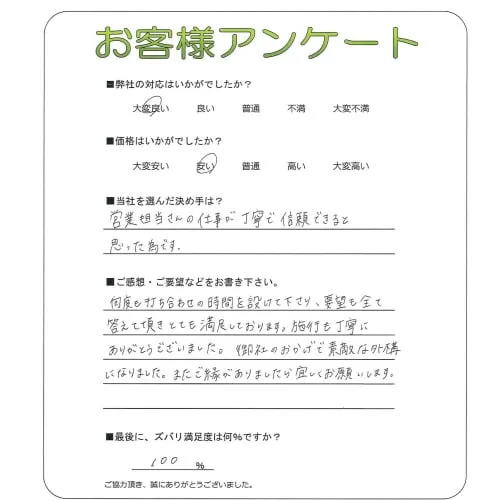 お客様アンケート
■弊社の対応はいかがでしたか？
大変良い 良い 普通 不満 大変不満
■価格はいかがでしたか？
大変安い 安い 普通 高い 大変高い
■当社を選んだ決め手は？
営業担当さんの仕事が丁寧で信頼できると
思った為です。
■ご感想・ご要望などをお書き下さい。
何度も打ち合わせの時間を設けて下さり、要望も全て
答えて頂きとても満足しております。施行も丁寧に
ありがとうございました。御社のおかげで素敵な外構
になりました。またご縁がありましたら宜しくお願いします。
■最後に、ズバリ満足度は何%ですか？
100 %
ご協力頂き、誠にありがとうございました。